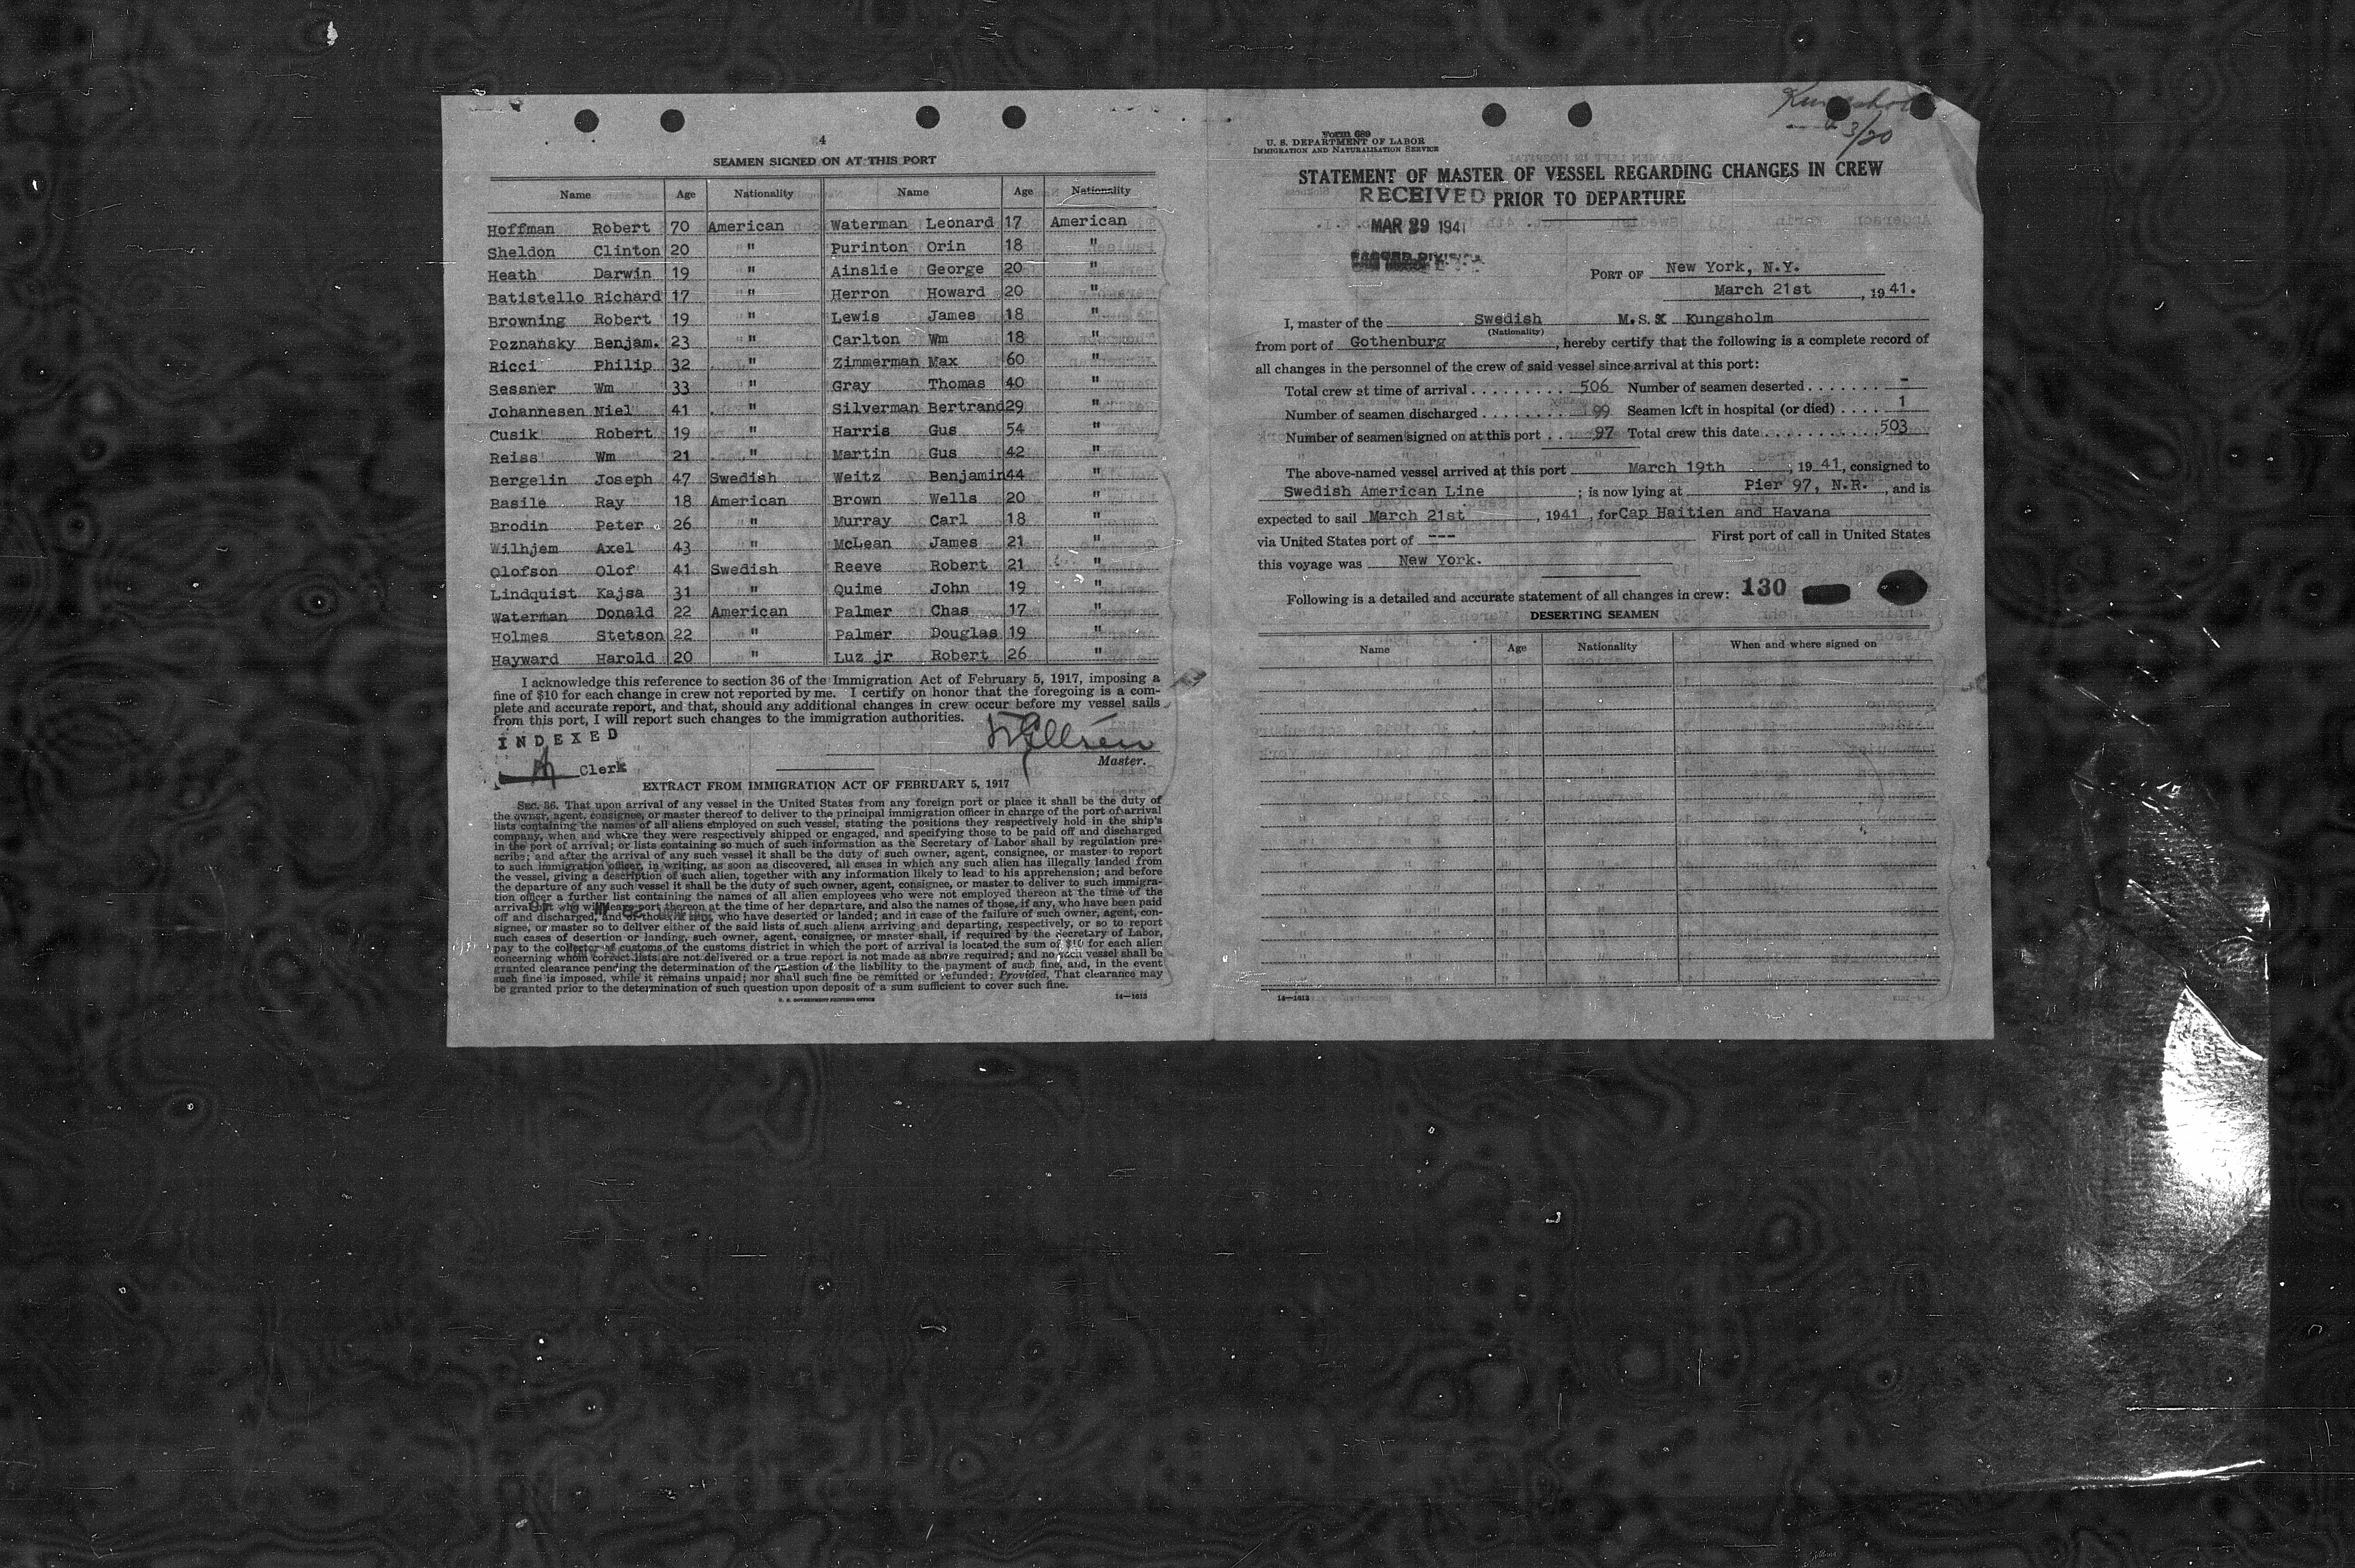 4
SEAMEN SIGNED ON AT THIS PORT
Name Age Nationality Name Age Nationality
Hoffman Robert 70 American Waterman Leonard 17 American
Sheldon Clinton 20 " Purinton Orin 18 "
Heath Darwin 19 " Ainslie George 20 "
Batistello Richard 17 " Herron Howard 20 "
Browning Robert 19 " Lewis James 18 "
Poznansky Benjam. 23 " Carlton Wm 18 "
Ricci Philip 32 " Zimmerman Max 60 "
Sessner Wm 33 " Gray Thomas 40 "
Johannesen Niel 41 " Silverman Bertrand 29 "
Cusik Robert 19 " Harris Gus 54 "
Reiss Wm 21 " Martin Gus 42 "
Bergelin Joseph 47 Swedish Weitz Benjamin 44 "
Basile Ray 18 American Brown Wells 20 "
Brodin Peter 26 " Murray Carl 18 "
Wilhjem Axel 43 " McLean James 21 "
Olofson Olof 41 Swedish Reeve Robert 21 "
Lindquist Kajsa 31 " Quime John 19 "
Waterman Donald 22 American Palmer Chas 17 "
Holmes Stetson 22 " Palmer Douglas 19 "
Hayward Harold 20 " Luz jr Robert 26 "
I acknowledge this reference to section 36 of the Immigration Act of February 5, 1917, imposing a
fine of $10 for each change in crew not reported by me. I certify on honor that the foregoing is a com-
plete and accurate report, and that, should any additional changes in crew occur before my vessel sails
from this port, I will report such changes to the immigration authorities.
INDEXED
Clerk
Master.
EXTRACT FROM IMMIGRATION ACT OF FEBRUARY 5, 1917
SEC. 36. That upon arrival of any vessel in the United States from any foreign port or place it shall be the duty of
the owner, agent, consignee, or master thereof to deliver to the principal immigration officer in charge of the port of arrival
lists containing the names of all aliens employed on such vessel, stating the positions they respectively hold in the ship's
company, when and where they were respectively shipped or engaged, and specifying those to be paid off and discharged
in the port of arrival; or lists containing so much of such information as the Secretary of Labor shall by regulation pre-
scribe; and after the arrival of any such vessel it shall be the duty of such owner, agent, consignee, or master to report
to such immigration officer, in writing, as soon as discovered, all cases in which any such alien has illegally landed from
the vessel, giving a description of such alien, together with any information likely to lead to his apprehension; and before
the departure of any such vessel it shall be the duty of such owner, agent, consignee, or master to deliver to such immigra-
tion officer a further list containing the names of all alien employees who were not employed thereon at the time of the
arrival but who will leave port thereon at the time of her departure, and also the names of those, if any, who have been paid
off and discharged, and of those, if any, who have deserted or landed; and in case of the failure of such owner, agent, con-
signee, or master so to deliver either of the said lists of such aliens arriving and departing, respectively, or so to report
such cases of desertion or landing, such owner, agent, consignee, or master shall, if required by the Secretary of Labor,
pay to the collector of customs of the customs district in which the port of arrival is located the sum of $10 for each alien
concerning whom correct lists are not delivered or a true report is not made as above required; and no such vessel shall be
granted clearance pending the determination of the question of the liability to the payment of such fine, and, in the event
such fine is imposed, while it remains unpaid; nor shall such fine be remitted or refunded: Provided, That clearance may
be granted prior to the determination of such question upon deposit of a sum sufficient to cover such fine.
U. S. GOVERNMENT PRINTING OFFICE 14—1613
Kungsholm
3/20
Form 689
U. S. DEPARTMENT OF LABOR
IMMIGRATION AND NATURALISATION SERVICE
STATEMENT OF MASTER OF VESSEL REGARDING CHANGES IN CREW
RECEIVED PRIOR TO DEPARTURE
MAR 29 1941
PORT OF New York, N.Y.
March 21st, 1941.
I, master of the Swedish M.S.X Kungsholm
(Nationality)
from port of Gothenburg, hereby certify that the following is a complete record of
all changes in the personnel of the crew of said vessel since arrival at this port:
Total crew at time of arrival . . . . . . . . . 506 Number of seamen deserted . . . . . . . -
Number of seamen discharged . . . . . . . 99 Seamen left in hospital (or died) . . . . 1
Number of seamen signed on at this port . . 97 Total crew this date . . . . . . . . . . 503
The above-named vessel arrived at this port March 19th, 1941, consigned to
Swedish American Line; is now lying at Pier 97, N.R., and is
expected to sail March 21st, 1941, for Cap Haitien and Havana
via United States port of --- First port of call in United States
this voyage was New York.
Following is a detailed and accurate statement of all changes in crew: 130
DESERTING SEAMEN
Name Age Nationality When and where signed on
14—1613